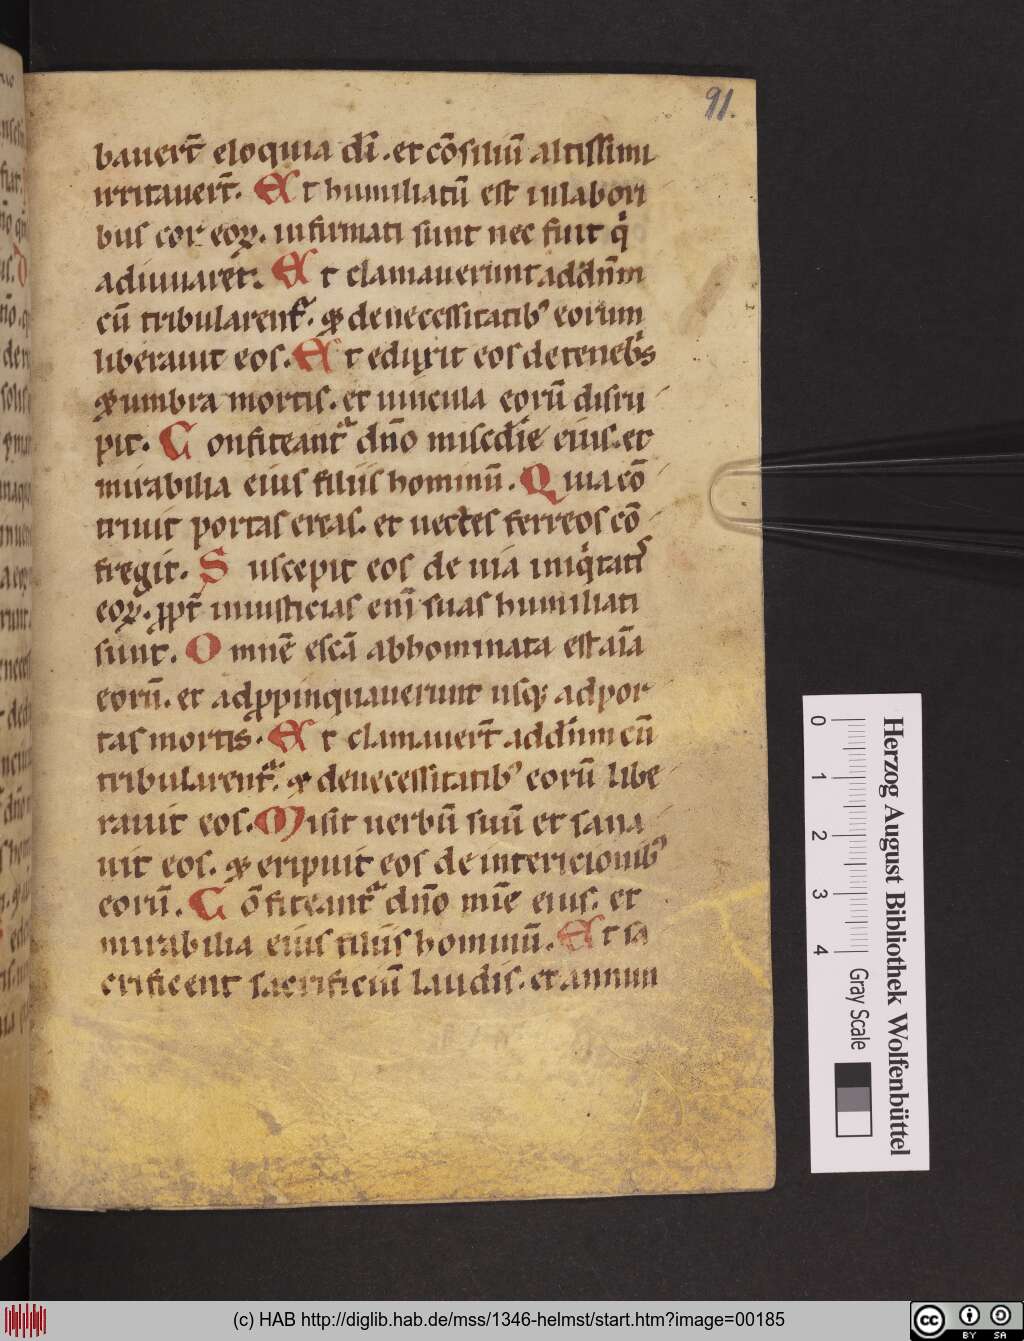 91.
bauert̄ eloquia dī. et cōsiliū altissimi
irritauert̄. Et humiliatū est inlabori
bus cor eoꝝ. infirmati sunt nec fuit qͥ
adiuuaret. Et clamauerunt addn̄m
cū tribularentᷣ. ⁊ de necessitatibꝰ eorum
liberauit eos. Et eduxit eos de tenebͥs
⁊ umbra mortis. et uincula eorū disru
pit. Confiteantᷣ dn̄o miscdīe eius. et
mirabilia eius filiis hominū. Quia cō
triuit portas ereas. et uectes ferreos cō
fregit. Suscepit eos de uia iniqͥtatis
eoꝝ. ꝓpt̄ iniusticias enī suas humiliati
sunt. Omnē escā abhominata est aīa
eorū. et adꝓpinquauerunt usqꝫ adpor
tas mortis. Et clamauert̄ addn̄m cū
tribularentᷣ. ⁊ denecessitatibꝰ eorū libe
rauit eos. Misit uerbū suū et sana
uit eos. ⁊ eripuit eos de intericionibꝰ
eorū. Cōfiteantᷣ dn̄o mīe eius. et
mirabilia eius filiis hominū. Et sa
crificent sacrificiū laudis. et annun
Herzog August Bibliothek Wolfenbüttel
0 1 2 3 4
Gray Scale
(c) HAB http://diglib.hab.de/mss/1346-helmst/start.htm?image=00185
cc BY SA